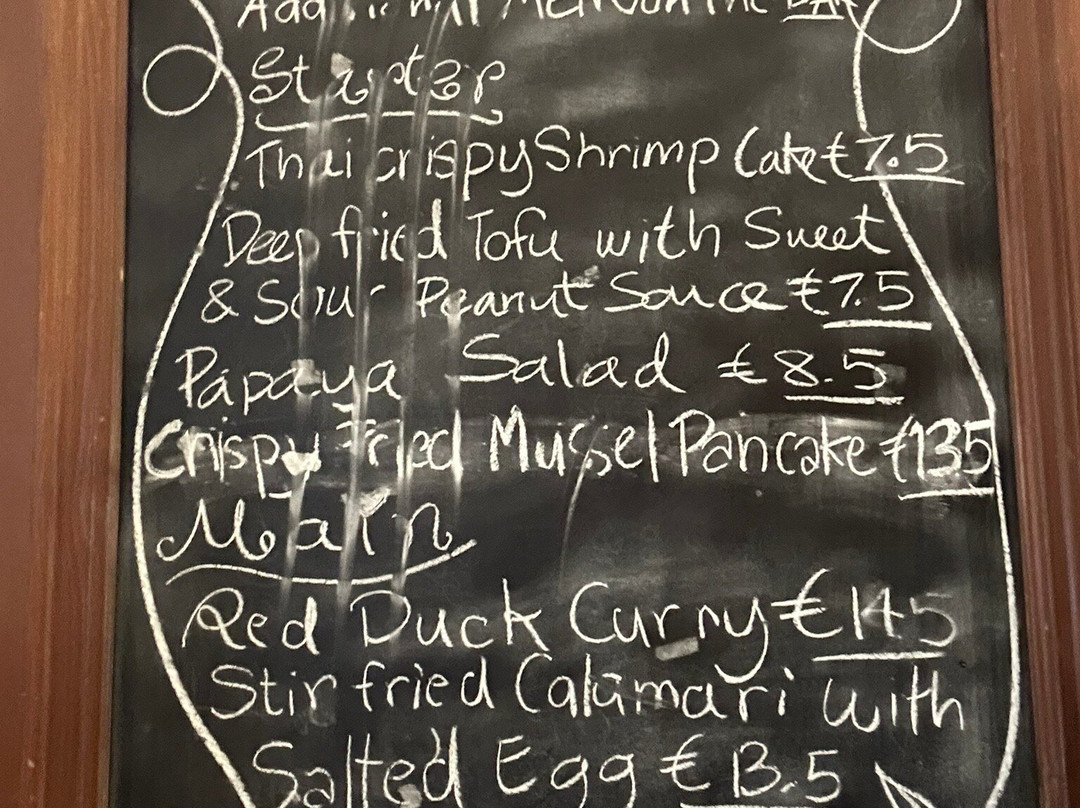 Starter
Thai crispy Shrimp Cake €7.5
Deep fried Tofu with Sweet
& Sour Peanut Sauce €7.5
Papaya Salad €8.5
Crispy Fried Mussel Pancake €135
Main
Red Duck Curry €14.5
Stir fried Calamari with
Salted Egg €13.5